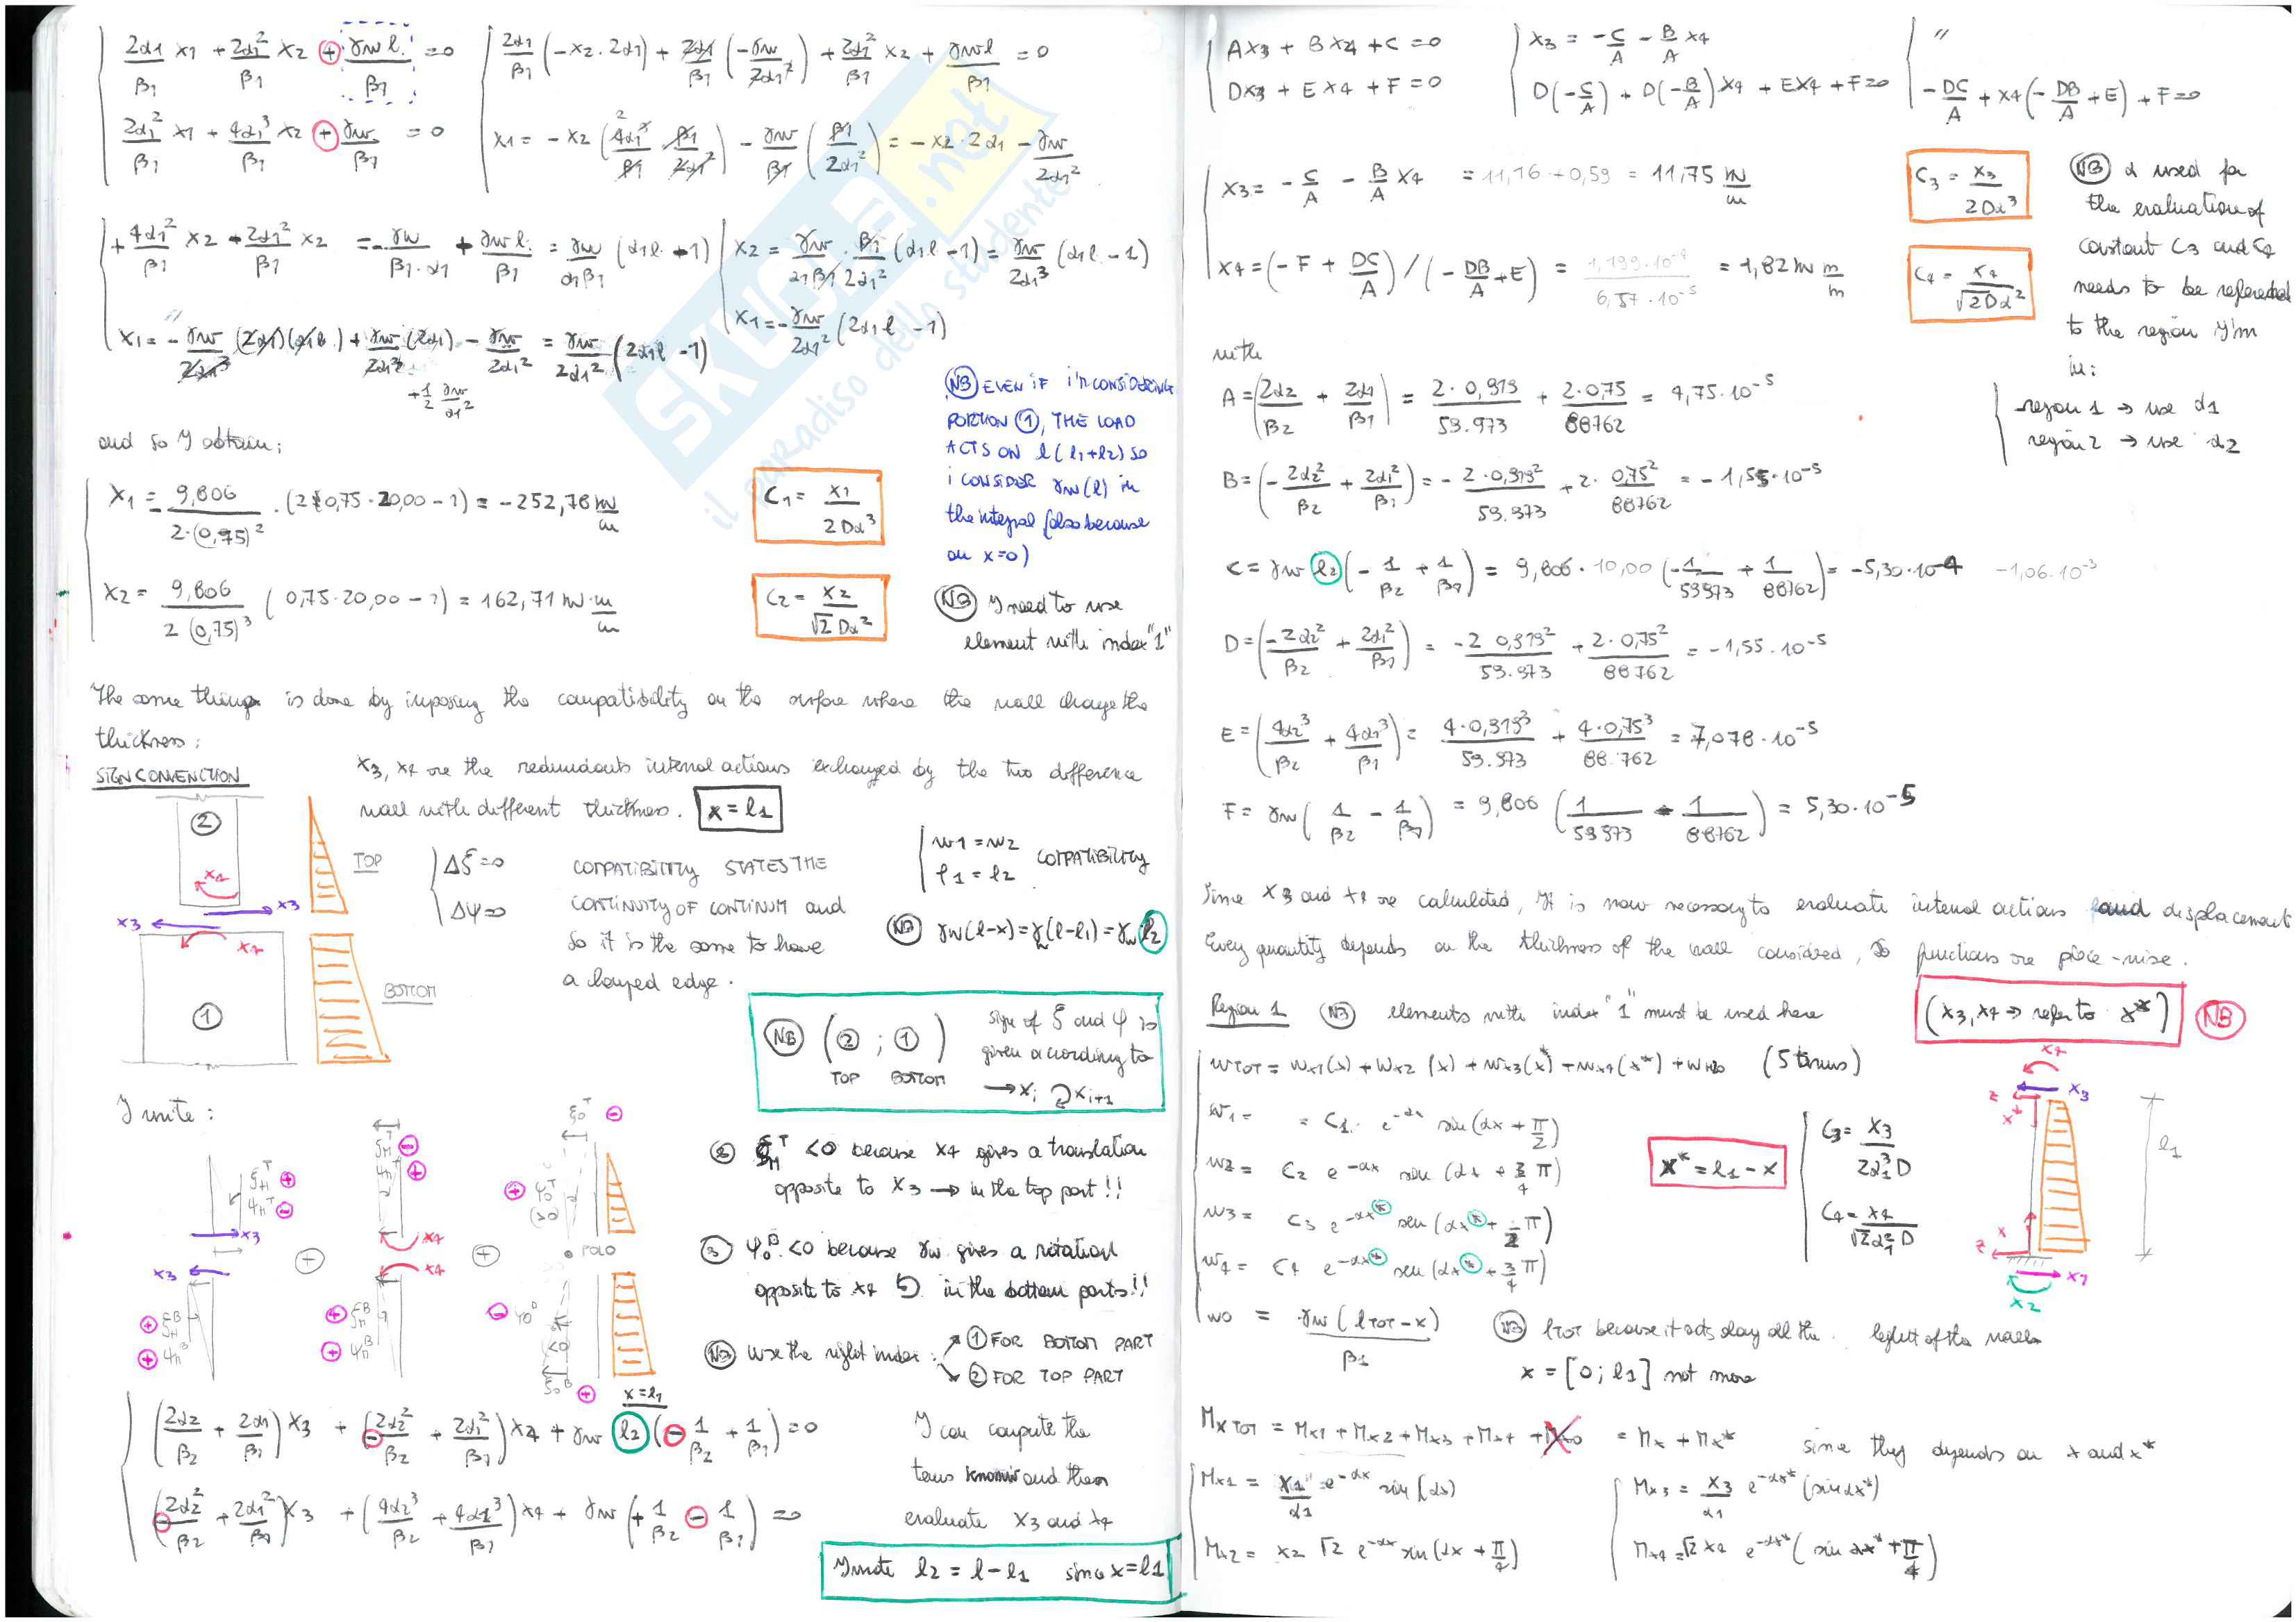 2α1/β1 x1 + 2α1²/β1 x2 + γw l/β1 = 0
2α1²/β1 x1 + 4α1³/β1 x2 + γw/β1 = 0
2α1/β1 (-x2·2α1) + 2α1/β1 (-γw/2α1²) + 2α1²/β1 x2 + γw l/β1 = 0
x1 = -x2 (4α1³/β1 · β1/2α1²) - γw/β1 (β1/2α1²) = -x2·2α1 - γw/2α1²
+4α1²/β1 x2 - 2α1²/β1 x2 = -γw/β1·α1 + γw l/β1 = γw/α1β1 (α1l - 1)
x2 = γw/α1β1 · β1/2α1² (α1l - 1) = γw/2α1³ (α1l - 1)
x1 = -γw/2α1³ (2α1)(α1l) + γw/2α1³ (2α1) - γw/2α1² = γw/2α1² (2α1l - 1)
+1/2 γw/α1²
x1 = -γw/2α1² (2α1l - 1)
and so I obtain:
X1 = 9,806/2·(0,75)² · (2·0,75·20,00 - 1) = -252,78 kN/m
X2 = 9,806/2(0,75)³ (0,75·20,00 - 1) = 162,71 kN·m/m
C1 = X1/2Dα³
C2 = X2/√2Dα²
NB EVEN IF I'M CONSIDERING
PORTION 1, THE LOAD
ACTS ON l (l1+l2) SO
i CONSIDER γw(l) in
the integral (also because
on x=0)
NB I need to use
element with index "1"
The same thing is done by imposing the compatibility on the surface where the wall change the
thickness:
SIGN CONVENCTION
x3, x4 are the redundants internal actions exchanged by the two difference
wall with different thickness. x = l1
2
TOP
x4
x3
x3
x4
1
BOTTOM
Δξ=0
Δφ=0
COMPATIBILITY STATES THE
CONTINUITY OF CONTINUM and
so it is the same to have
a clamped edge.
w1 = w2
φ1 = φ2
COMPATIBILITY
NB γw(l-x) = γw(l-l1) = γw l2
NB (2 ; 1)
TOP BOTTOM
sign of ξ and φ is
given according to
→ xi ↻ xi+1
I write:
POLO
2 ξM^T < 0 because x4 gives a translation
opposite to x3 → in the top part!!
3 φ0^B < 0 because γw gives a rotation
opposite to x4 in the bottom parts!!
NB use the right index: 1 FOR BOTTOM PART
2 FOR TOP PART
x=l1
(2α2/β2 + 2α1/β1) X3 + (-2α2²/β2 + 2α1²/β1) X4 + γw l2 (-1/β2 + 1/β1) = 0
(-2α2²/β2 + 2α1²/β1) X3 + (4α2³/β2 + 4α1³/β1) X4 + γw (+1/β2 - 1/β1) = 0
I can compute the
terms known and then
evaluate X3 and X4
I write l2 = l - l1 since x = l1
AX3 + BX4 + C = 0
DX3 + EX4 + F = 0
X3 = -C/A - B/A X4
D(-C/A) + D(-B/A) X4 + EX4 + F = 0
"
-DC/A + X4(-DB/A + E) + F = 0
X3 = -C/A - B/A X4 = 11,16 + 0,59 = 11,75 kN/m
X4 = (-F + DC/A) / (-DB/A + E) = 1,199·10⁻⁴/6,57·10⁻⁵ = 1,82 kN m/m
C3 = X3/2Dα³
C4 = X4/√2Dα²
NB α used for
the evaluation of
constant C3 and C4
needs to be refereed
to the region I'm
in:
region 1 → use α1
region 2 → use α2
with
A = (2α2/β2 + 2α1/β1) = 2·0,919/59.973 + 2·0,75/88762 = 4,75·10⁻⁵
B = (-2α2²/β2 + 2α1²/β1) = -2·0,919²/59.973 + 2·0,75²/88762 = -1,55·10⁻⁵
C = γw l2 (-1/β2 + 1/β1) = 9,806·10,00 (-1/59973 + 1/88762) = -5,30·10⁻⁴ -1,06·10⁻³
D = (-2α2²/β2 + 2α1²/β1) = -2 0,919²/59.973 + 2·0,75²/88762 = -1,55·10⁻⁵
E = (4α2³/β2 + 4α1³/β1) = 4·0,919³/59.973 + 4·0,75³/88.762 = 7,078·10⁻⁵
F = γw (1/β2 - 1/β1) = 9,806 (1/59973 - 1/88762) = 5,30·10⁻⁵
Since X3 and X4 are calculated, it is now necessary to evaluate internal actions and displacement
Every quantity depends on the thickness of the wall considered, so functions are piece-wise.
Region 1 NB elements with index "1" must be used here
(X3, X4 ⇒ refer to x*) NB
wTOT = wx1(x) + wx2(x) + wx3(x*) + wx4(x*) + wH20 (5 terms)
w1 = = C1· e^-αx sin(αx + π/2)
w2 = C2 e^-αx sin(αx + 3/4 π)
w3 = C3 e^-αx* sen(αx* + 1/2 π)
w4 = C4 e^-αx* sen(αx* + 3/4 π)
w0 = γw(lTOT - x)/β1
x* = l1 - x
C3 = X3/2α1³D
C4 = X4/√2α1²D
x4
x3
z
x*
l1
x
z
x1
x2
NB lTOT because it acts along all the height of the walls
x = [0; l1] not more
MxTOT = Mx1 + Mx2 + Mx3 + Mx4 + = Mx + Mx* since they depends on x and x*
Mx1 = X1/α1 e^-αx sin(αx)
Mx2 = X2 √2 e^-αx sin(αx + π/4)
Mx3 = X3/α1 e^-αx* (sin αx*)
Mx4 = √2 X4 e^-αx* (sin αx* + π/4)
SKUOLA.net
il paradiso dello studente